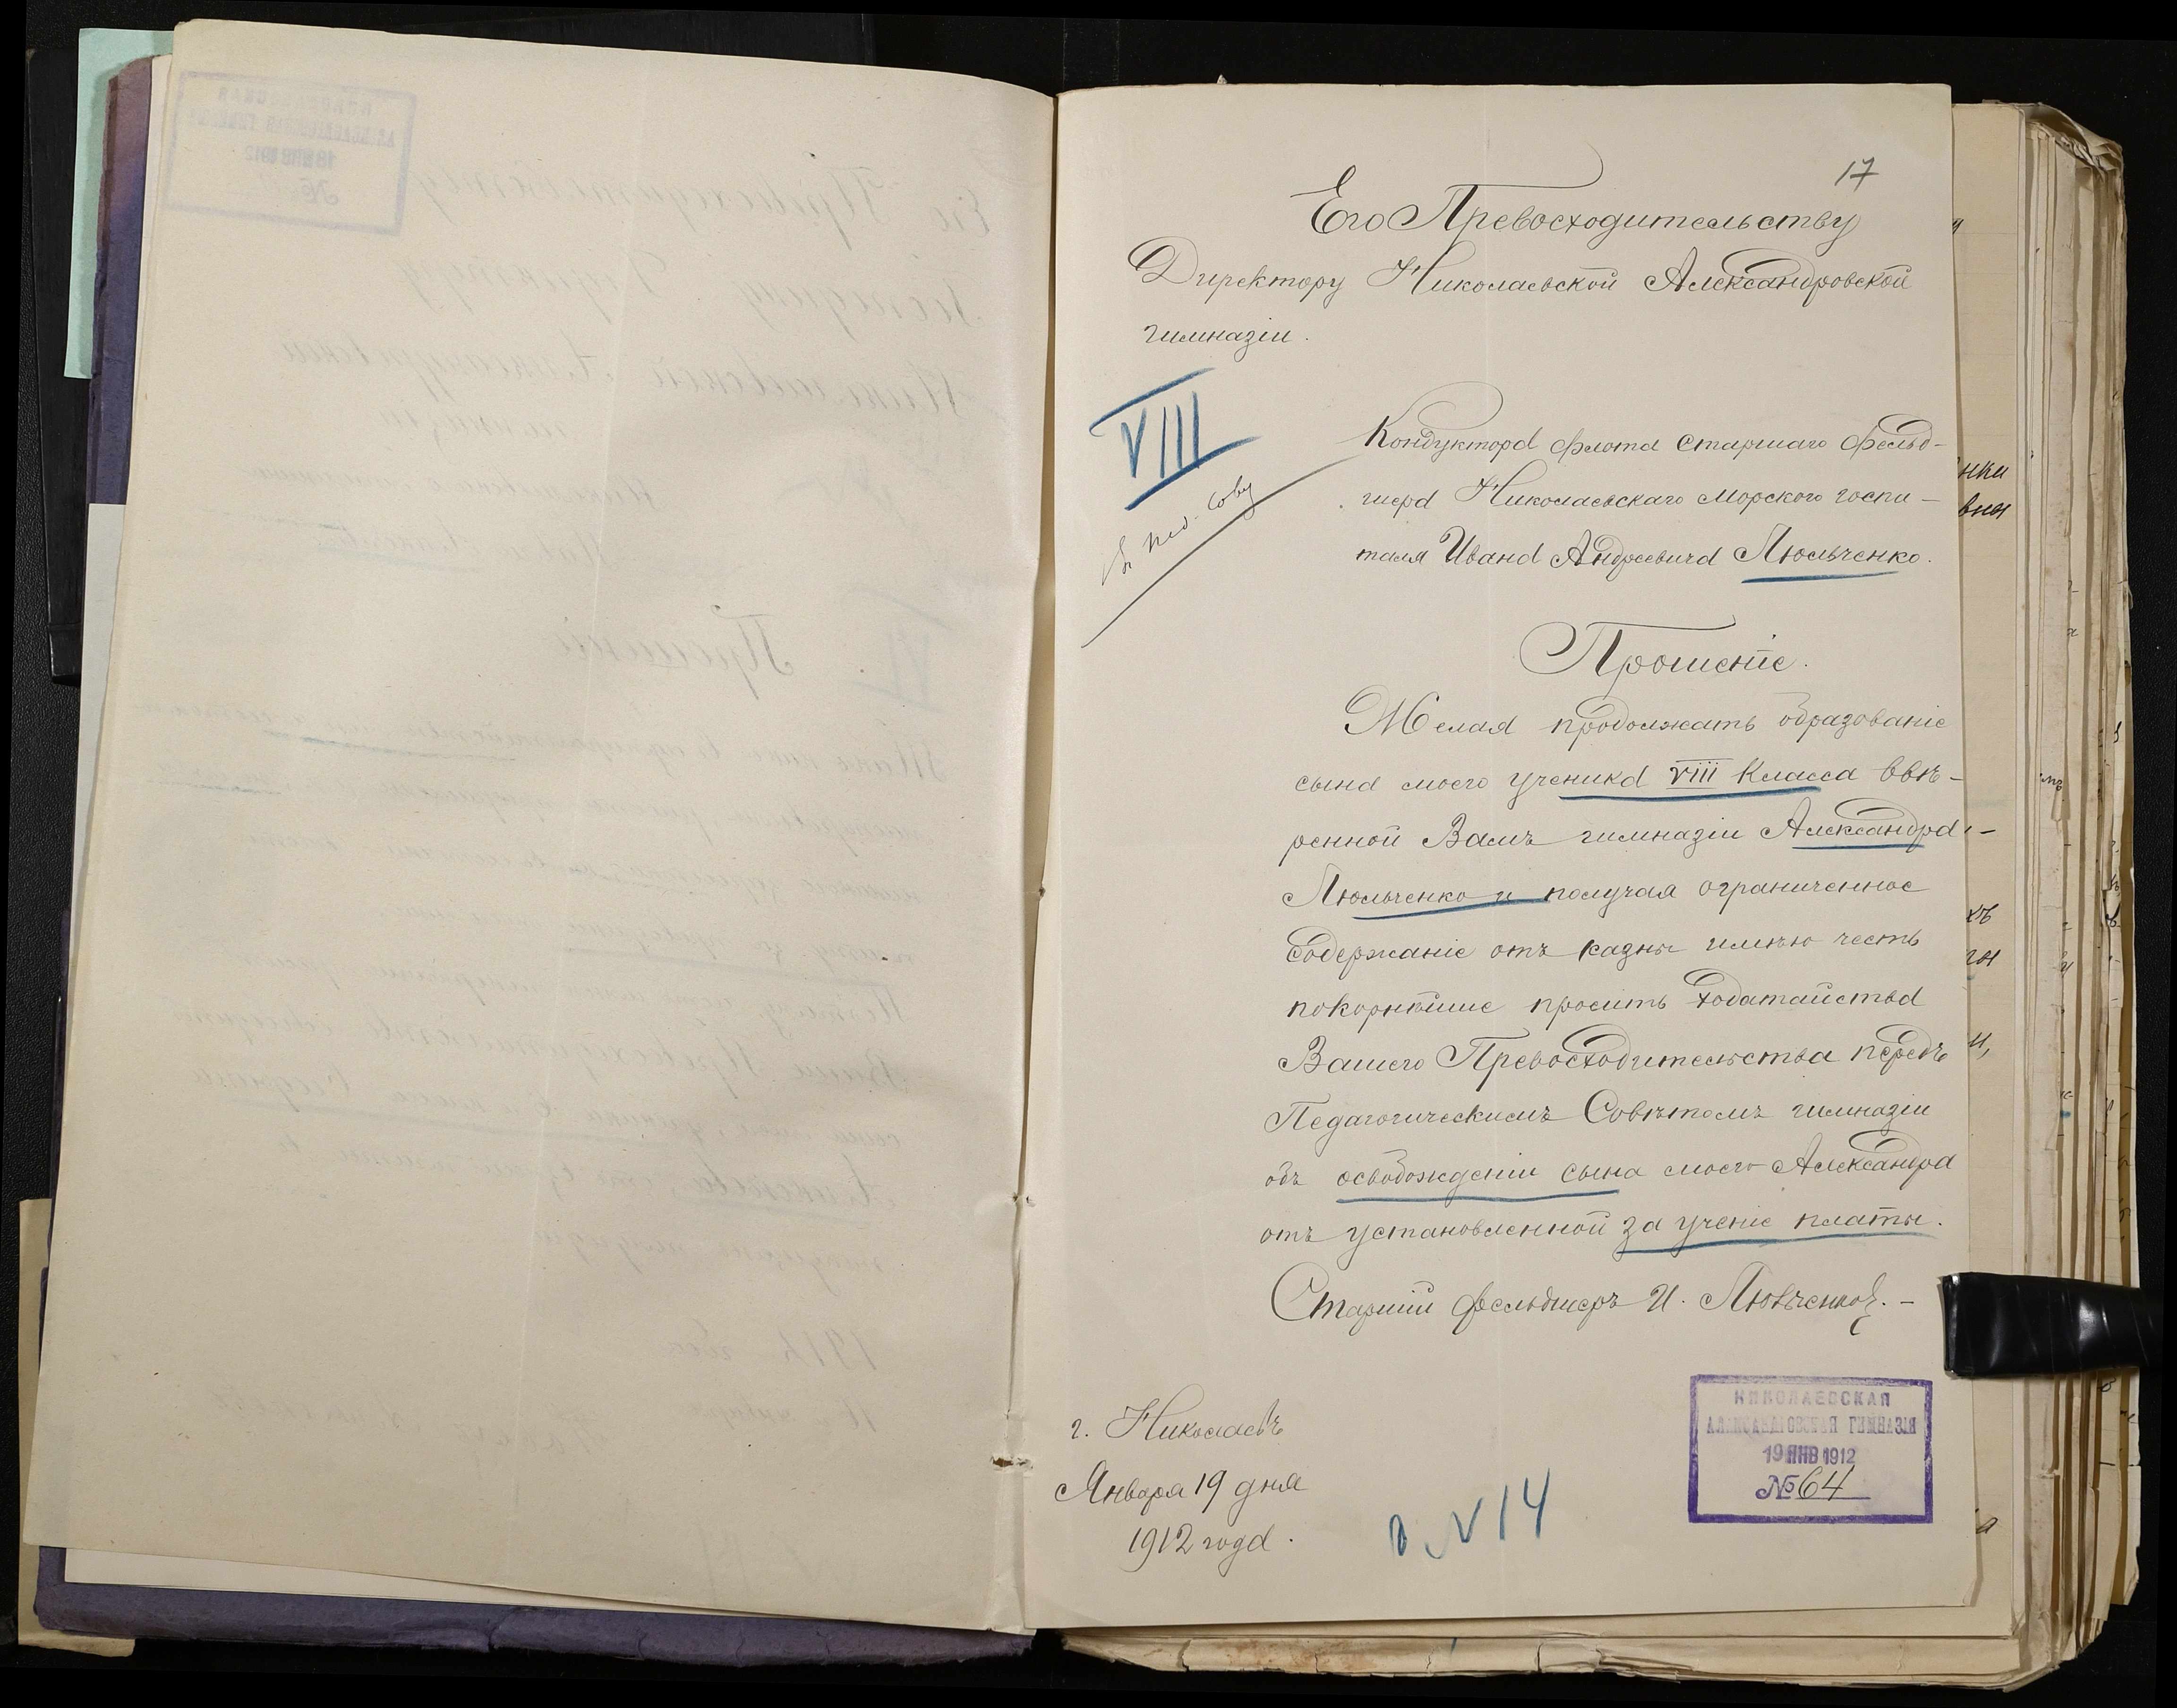 17
Его Превосходительству
Директору Николаевской Александровской
гимназіи.
VIII
Кондуктора флота старшаго фельд-
шера Николаевскаго морского госпи-
таля Ивана Андреевича Люльченко.
Прошеніе.
Желая продолжать образованіе
сына моего ученика VIII класса ввѣ-
ренной Вамъ гимназіи Александра
Люльченко и получая ограниченное
содержаніе отъ казны имѣю честь
покорнѣйше просить ходатайства
Вашего Превосходительства передъ
Педагогическимъ Совѣтомъ гимназіи
объ освобожденіи сына моего Александра
отъ установленной за ученіе платы.
Старшій фельдшеръ И. Люльченко. -
г. Николаевъ
Января 19 дня
1912 года.
№ 14
НИКОЛАЕВСКАЯ
АЛЕКСАНДРОВСКАЯ ГИМНАЗІЯ
19 ЯНВ 1912
№ 64